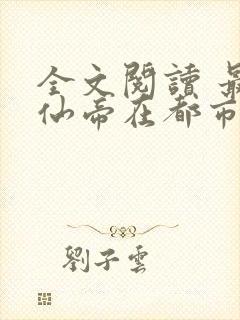 全文閱讀 最
仙帝在都市
劉子雲